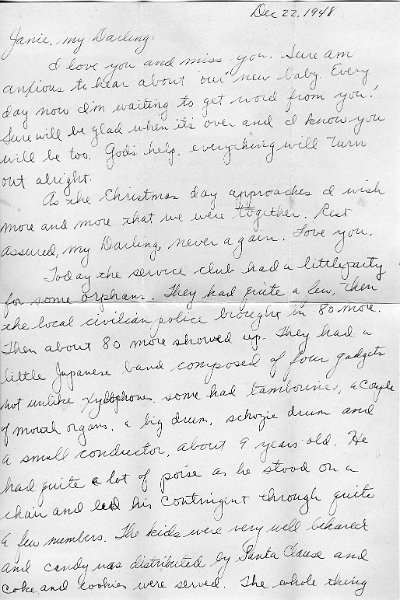 Dec 22, 1948
Janie, my Darling:
I love you and miss you. Sure am
anxious to hear about our new baby. Every
day now I'm waiting to get word from you.
Sure will be glad when it's over and I know you
will be too. God's help, everything will turn
out alright.
As the Christmas day approaches I wish
more and more that we were together. Rest
assured, my Darling, never again. Love you.
Today the service club had a little party
for some orphans. They had quite a few, then
the local civilian police brought in 80 more.
Then about 80 more showed up. They had a
little Japanese band composed of four gadgets
not unlike xylophones, some had tambourines, a couple
of organs, a big drum, drum and
a small conductor, about 9 years old. He
had quite a lot of poise as he stood on a
chair and led his contingent through quite
a few numbers. The kids were very well behaved
and candy was distributed by Santa Clause and
coke and cookies were served. The whole thing